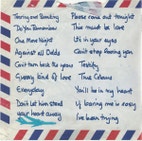 Tearing and Breaking
Do You Remember
One More Night
Against all Odds
Can't turn back the years
Groovy kind of love
Everyday
Don't let him steal
your heart away
Please come out tonight
This must be love
It's in your eyes
Can't stop loving you
Testify
True Colours
You'll be in my heart
If leaving me is easy
I've been trying